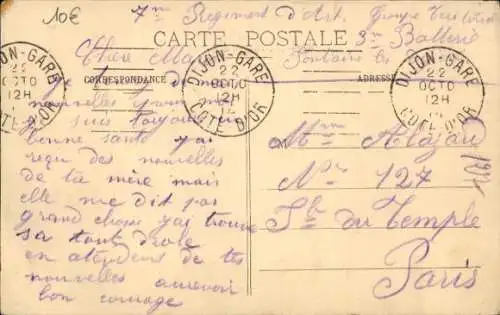 10€
7me Regiment d'Art. Groupe
3me Batterie
CARTE POSTALE
Fontaine les
CORRESPONDANCE
ADRESSE
DIJON-GARE
22
OCTO
12H
COTE D'OR
DIJON-GARE
22
OCTO
12H
COTE D'OR
DIJON-GARE
22
OCTO
12H
COTE D'OR
Je de mes
nouvelles
je suis toujours en
bonne santé j'ai
reçu des nouvelles
de ta mère mais
elle me dit pas
grand chose j'ai trouvé
sa tout drole
en attendent de tes
nouvelles aurevoir
bon courage
Mme Alazard
No 127
Fb du Temple
Paris